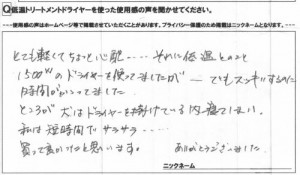 Q低温トリートメントドライヤーを使った使用感の声を聞かせてください。
---使用感の声はホームページ等で掲載させていただくことがあります。プライバシー保護のため掲載はニックネームとなります。---
とても軽くてちょっと心配……それに低温とのこと
1500Wのドライヤーを使ってましたが ー でもスッキリするのに
時間がかかってました
ところが 犬はドライヤーを掛けている内 寝てしまい
私は短時間でサラサラ……
買って良かったと思います。
ありがとうございました
ニックネーム